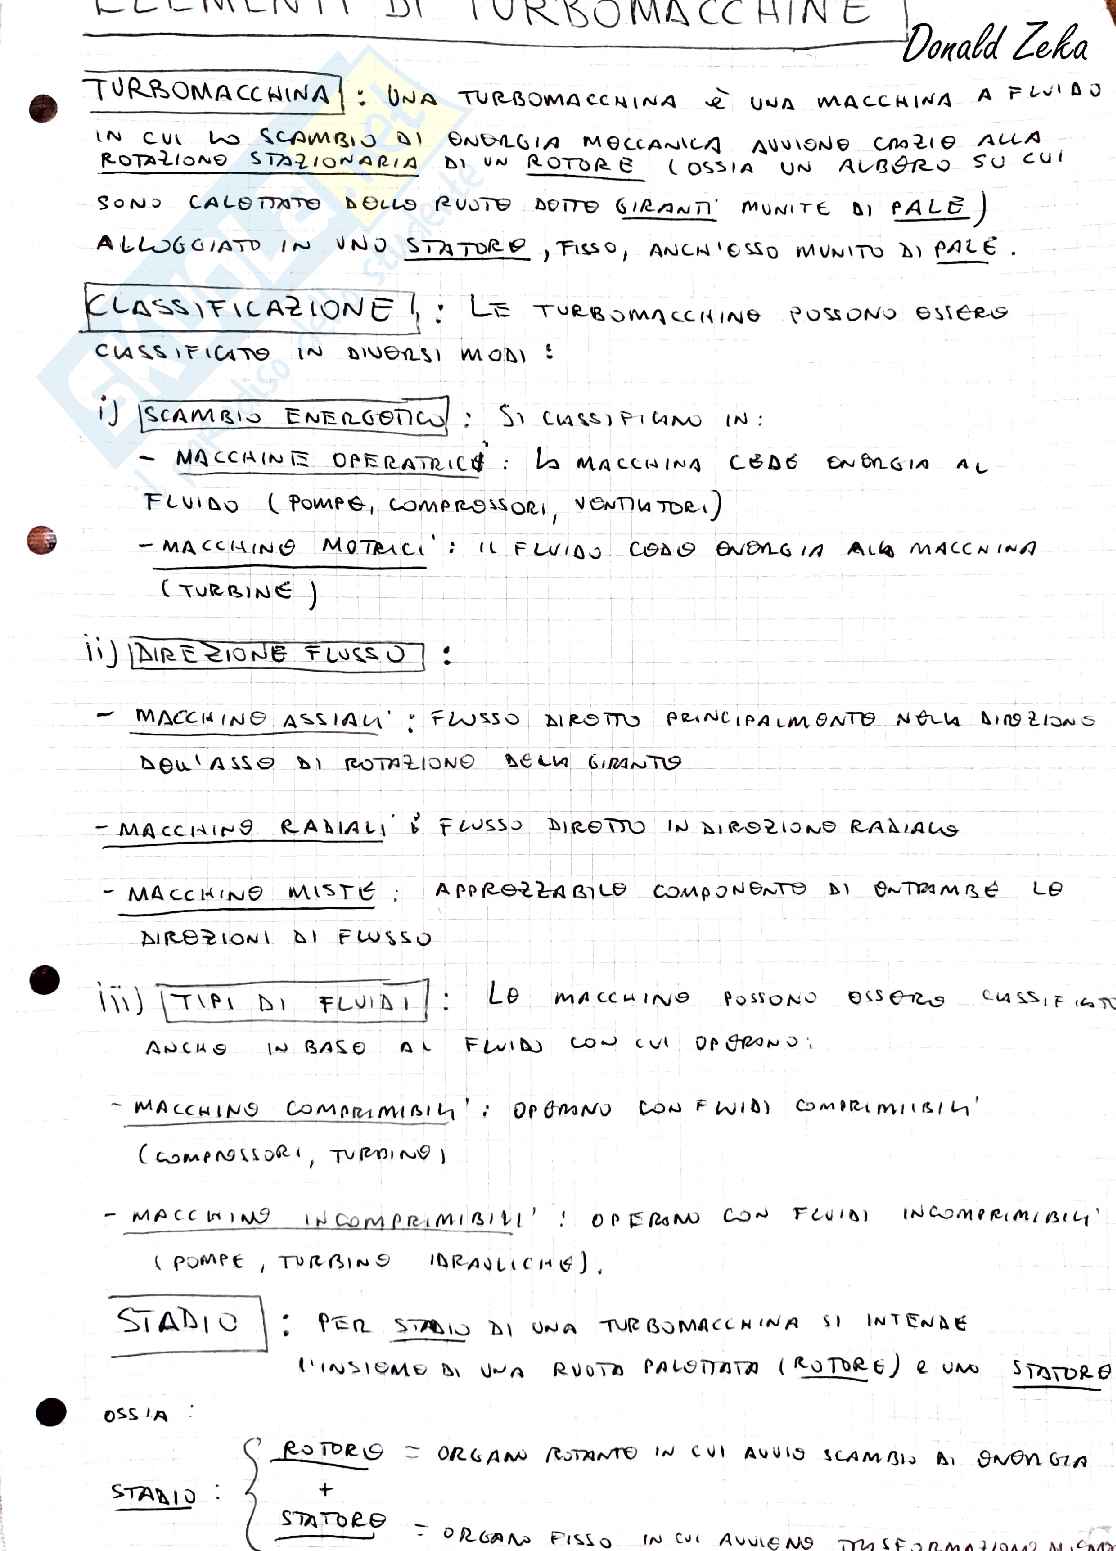 ELEMENTI DI TURBOMACCHINE
Donald Zeka
TURBOMACCHINA : UNA TURBOMACCHINA è UNA MACCHINA A FLUIDO
IN CUI LO SCAMBIO DI ENERGIA MECCANICA AVVIENE GRAZIE ALLA
ROTAZIONE STAZIONARIA DI UN ROTORE (OSSIA UN ALBERO SU CUI
SONO CALETTATE DELLE RUOTE DETTE GIRANTI MUNITE DI PALE)
ALLOGGIATO IN UNO STATORE, FISSO, ANCH'ESSO MUNITO DI PALE.
CLASSIFICAZIONE : LE TURBOMACCHINE POSSONO ESSERE
CLASSIFICATE IN DIVERSI MODI :
i) SCAMBIO ENERGETICO : SI CLASSIFICANO IN:
- MACCHINE OPERATRICI : LA MACCHINA CEDE ENERGIA AL
FLUIDO (POMPE, COMPRESSORI, VENTILATORI)
- MACCHINE MOTRICI : IL FLUIDO CEDE ENERGIA ALLA MACCHINA
(TURBINE)
ii) DIREZIONE FLUSSO :
- MACCHINE ASSIALI : FLUSSO DIRETTO PRINCIPALMENTE NELLA DIREZIONE
DELL'ASSE DI ROTAZIONE DELLA GIRANTE
- MACCHINE RADIALI : FLUSSO DIRETTO IN DIREZIONE RADIALE
- MACCHINE MISTE : APPREZZABILE COMPONENTE DI ENTRAMBE LE
DIREZIONI DI FLUSSO
iii) TIPI DI FLUIDI : LE MACCHINE POSSONO ESSERE CLASSIFICATE
ANCHE IN BASE AL FLUIDO CON CUI OPERANO:
- MACCHINE COMPRIMIBILI : OPERANO CON FLUIDI COMPRIMIIBILI
(COMPRESSORI, TURBINE)
- MACCHINE INCOMPRIMIBILI : OPERANO CON FLUIDI INCOMPRIMIBILI
(POMPE, TURBINE IDRAULICHE).
STADIO : PER STADIO DI UNA TURBOMACCHINA SI INTENDE
L'INSIEME DI UNA RUOTA PALETTATA (ROTORE) E UNO STATORE
OSSIA :
ROTORE = ORGANO ROTANTE IN CUI AVVIE SCAMBIO DI ENERGIA
STADIO : +
STATORE = ORGANO FISSO IN CUI AVVIENE TRASFORMAZIONE